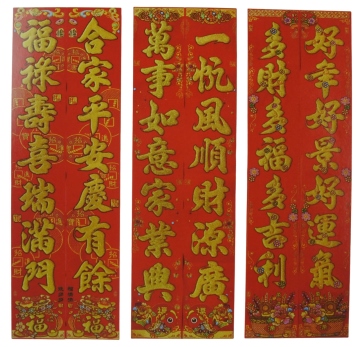 好年好景好運氣
多財多福多吉利
一帆風順財源廣
萬事如意家業興
合家平安慶有餘
福祿壽喜瑞滿門
福
福